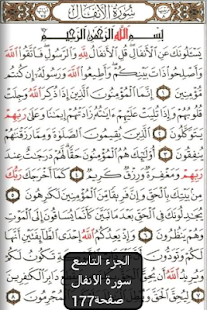 سُورَةُ الأَنفَالِ
بِسْمِ اللَّهِ الرَّحْمَٰنِ الرَّحِيمِ
يَسْـَٔلُونَكَ عَنِ ٱلْأَنفَالِ قُلِ ٱلْأَنفَالُ لِلَّهِ وَٱلرَّسُولِ فَٱتَّقُوا۟ ٱللَّهَ
وَأَصْلِحُوا۟ ذَاتَ بَيْنِكُمْ وَأَطِيعُوا۟ ٱللَّهَ وَرَسُولَهُۥٓ إِن كُنتُم
مُّؤْمِنِينَ ١ إِنَّمَا ٱلْمُؤْمِنُونَ ٱلَّذِينَ إِذَا ذُكِرَ ٱللَّهُ وَجِلَتْ
قُلُوبُهُمْ وَإِذَا تُلِيَتْ عَلَيْهِمْ ءَايَٰتُهُۥ زَادَتْهُمْ إِيمَٰنًا وَعَلَىٰ رَبِّهِمْ
يَتَوَكَّلُونَ ٢ ٱلَّذِينَ يُقِيمُونَ ٱلصَّلَوٰةَ وَمِمَّا رَزَقْنَٰهُمْ
يُنفِقُونَ ٣ أُو۟لَٰٓئِكَ هُمُ ٱلْمُؤْمِنُونَ حَقًّا لَّهُمْ دَرَجَٰتٌ عِندَ
رَبِّهِمْ وَمَغْفِرَةٌ وَرِزْقٌ كَرِيمٌ ٤ كَمَآ أَخْرَجَكَ رَبُّكَ
مِنۢ بَيْتِكَ بِٱلْحَقِّ وَإِنَّ فَرِيقًا مِّنَ ٱلْمُؤْمِنِينَ لَكَٰرِهُونَ ٥
يُجَٰدِلُونَكَ فِى ٱلْحَقِّ بَعْدَ مَا تَبَيَّنَ كَأَنَّمَا يُسَاقُونَ إِلَى ٱلْمَوْتِ
وَهُمْ يَنظُرُونَ ٦ وَإِذْ يَعِدُكُمُ ٱللَّهُ إِحْدَى ٱلطَّآئِفَتَيْنِ
الجزء التاسع
سورة الأنفال
صفحة177